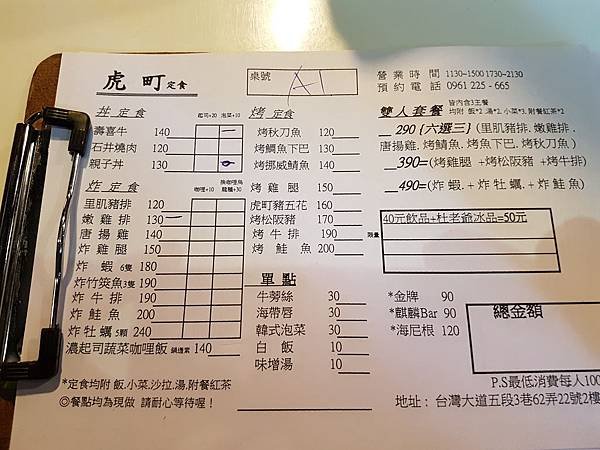 虎町定食
桌號 A1
營業時間 1130~1500 1730~2130
預約電話 0961 225 - 665
丼 定 食 起司+20 泡菜+10
壽喜牛 140
石井燒肉 120
親子丼 130
炸 定 食 咖哩+10 換咖哩烏龍麵+30
里肌豬排 120
嫩雞排 130
唐揚雞 140
炸雞腿 150
炸 蝦 6隻 180
炸竹筴魚3隻 190
炸牛排 190
炸鮭魚 200
炸牡蠣 5顆 240
濃起司蔬菜咖哩飯 鍋邊素 140
*定食均附 飯.小菜.沙拉.湯.附餐紅茶
◎餐點均為現做 請耐心等待喔！
烤 定食
烤秋刀魚 120
烤鯛魚下巴 130
烤挪威鯖魚 130
烤雞腿 150
虎町豬五花 160
烤松阪豬 170
烤牛排 190
烤鮭魚 200
單 點
牛蒡絲 30
海帶唇 30
韓式泡菜 30
白飯 10
味增湯 10
雙人套餐 皆內含3主餐
均附 飯*2.湯*2.小菜*3.附餐紅茶*2
290{六選三}(里肌豬排.嫩雞排.
唐揚雞.烤鯖魚.烤魚下巴.烤秋刀魚)
390=(烤雞腿+烤松阪豬+烤牛排)
490=(炸蝦.+炸牡蠣.+炸鮭魚)
40元飲品+杜老爺冰品=50元
限量
*金牌 90
*麒麟Bar 90
*海尼根 120
總金額
P.S最低消費每人100
地址： 台灣大道五段3巷62弄22號2樓